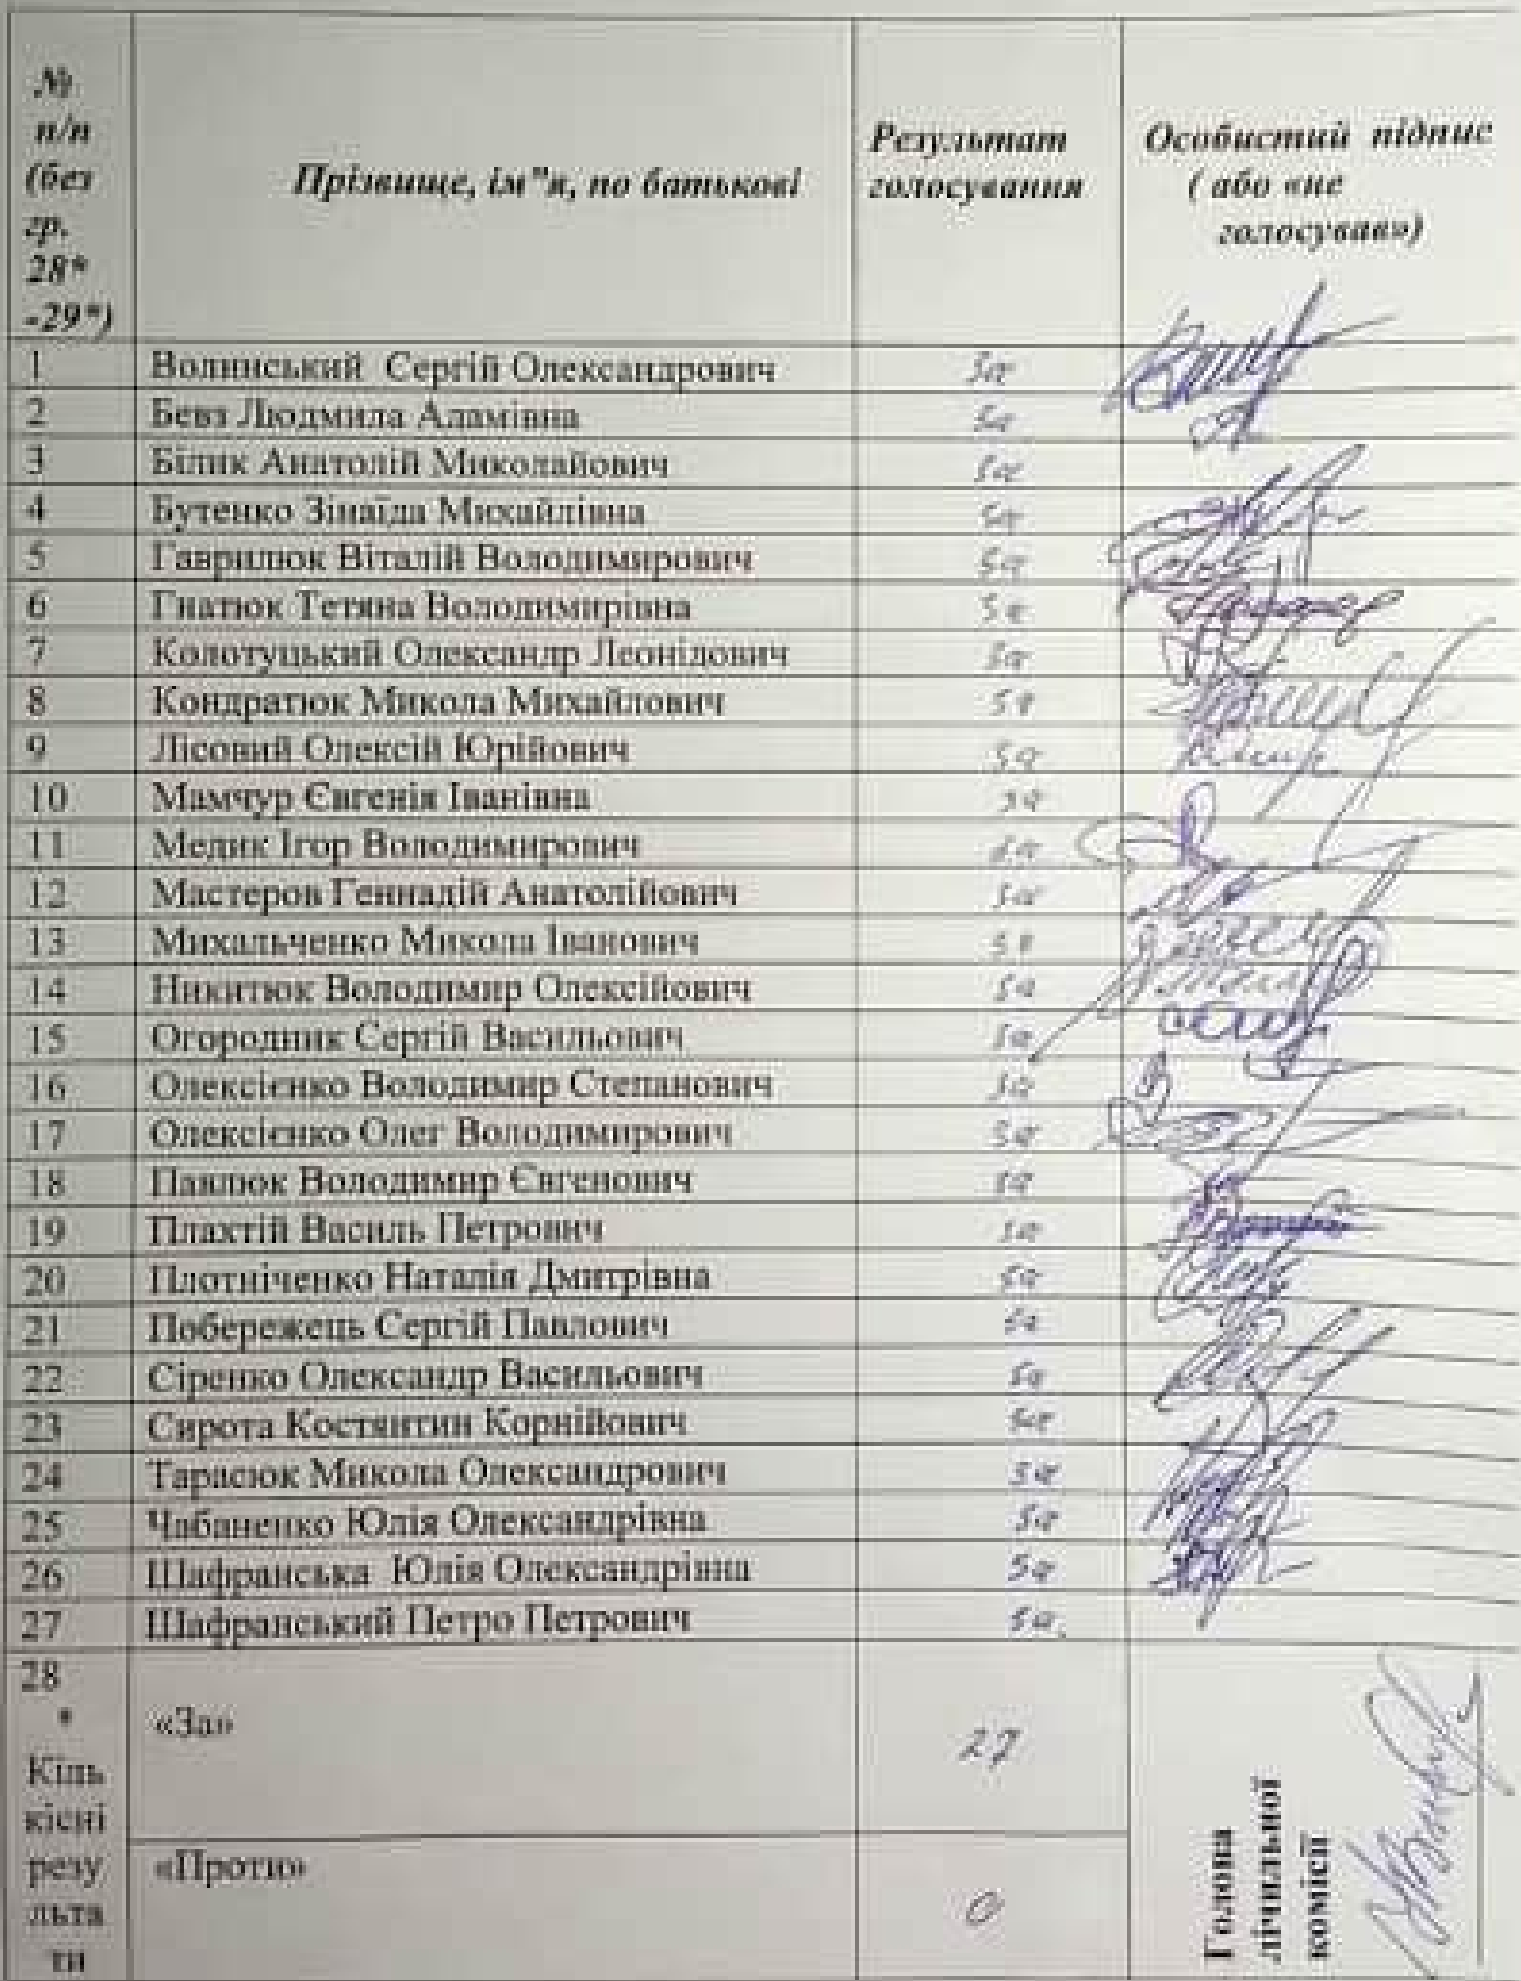 №
п/п
(без
гр.
28*
-29*)
Прізвище, ім"я, по батькові
Результат
голосування
Особистий підпис
( або «не
голосував»)
1 Волинський Сергій Олександрович За
2 Бевз Людмила Адамівна За
3 Білик Анатолій Миколайович За
4 Бутенко Зінаїда Михайлівна За
5 Гаврилюк Віталій Володимирович За
6 Гнатюк Тетяна Володимирівна За
7 Колотуцький Олександр Леонідович За
8 Кондратюк Микола Михайлович За
9 Лісовий Олексій Юрійович За
10 Мамчур Євгенія Іванівна За
11 Медик Ігор Володимирович За
12 Мастеров Геннадій Анатолійович За
13 Михальченко Микола Іванович За
14 Никитюк Володимир Олексійович За
15 Огородник Сергій Васильович За
16 Олексієнко Володимир Степанович За
17 Олексієнко Олег Володимирович За
18 Павлюк Володимир Євгенович За
19 Плахтій Василь Петрович За
20 Плотніченко Наталія Дмитрівна За
21 Побережець Сергій Павлович За
22 Сіренко Олександр Васильович За
23 Сирота Костянтин Корнійович За
24 Тарасюк Микола Олександрович За
25 Чабаненко Юлія Олександрівна За
26 Шафранська Юлія Олександрівна За
27 Шафранський Петро Петрович За
28
*
Кіль
кісні
резу
льта
ти
«За» 27
«Проти» 0
Голова
лічильної
комісії